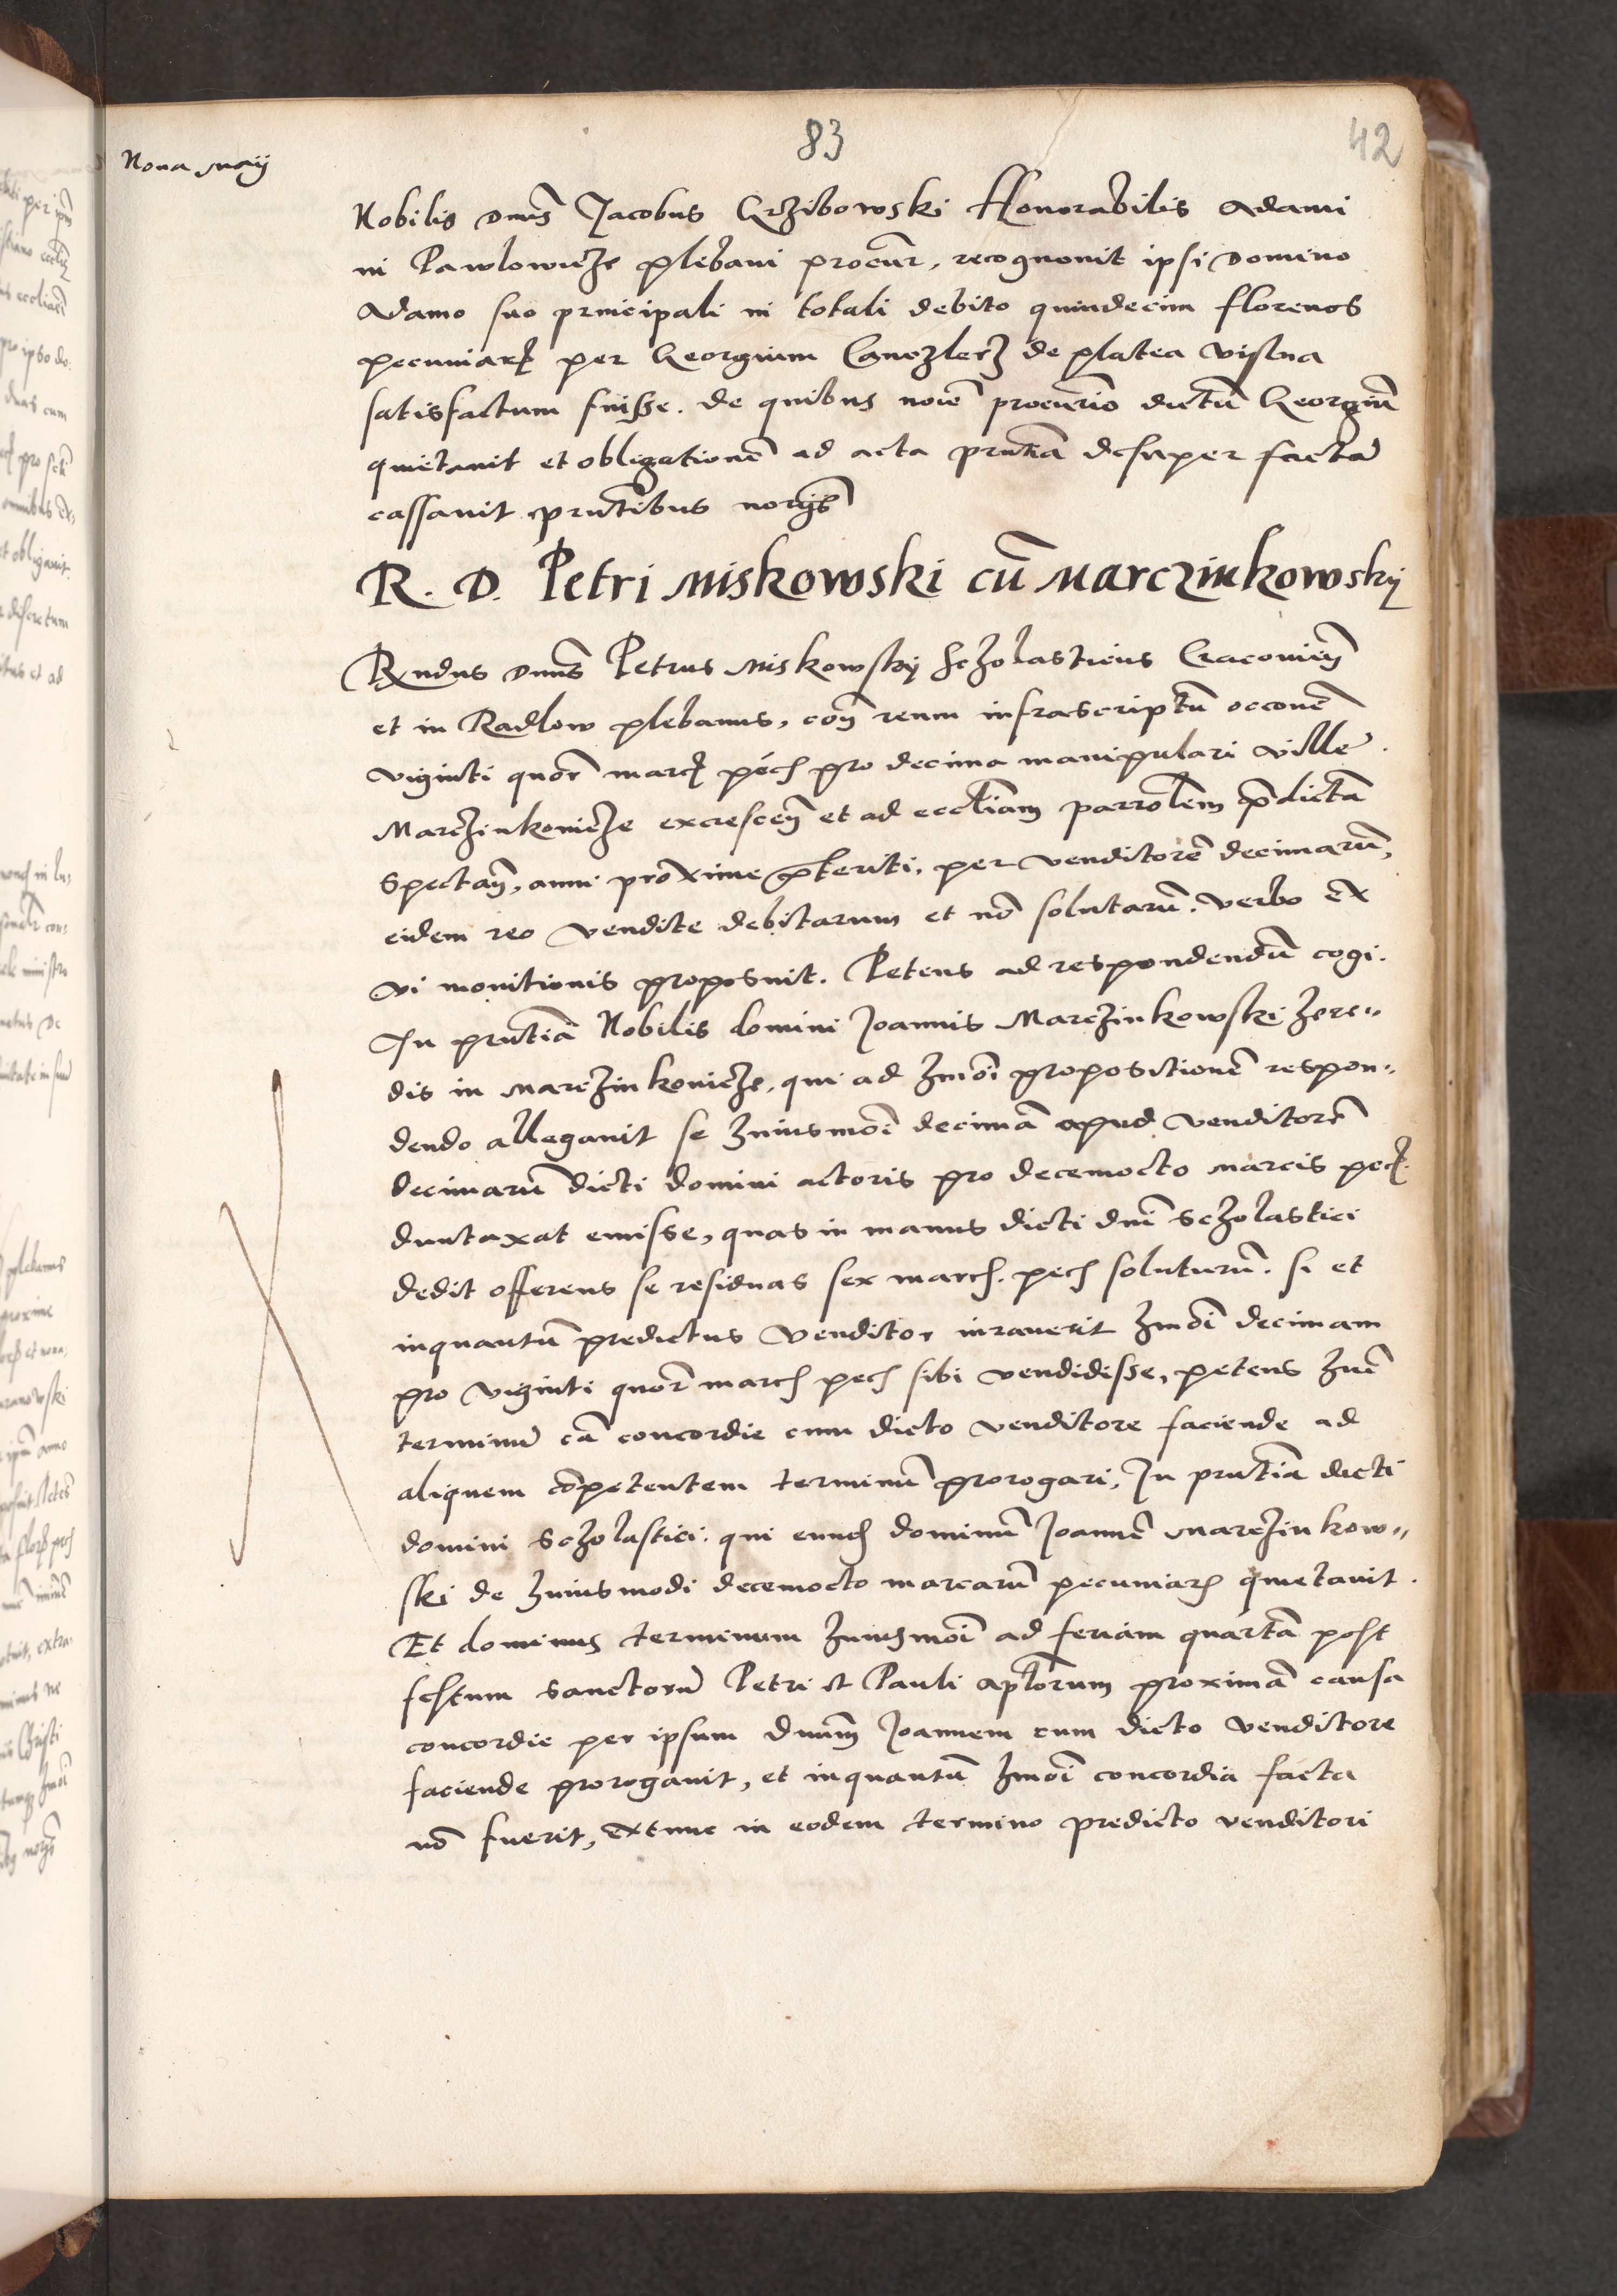 83
42
Nona Maij
Nobilis dnūs Jacobus Grzibowski Honorabilis Adami
in Pawlowicze plebani procur̄, recognovit ipsi Domino
Adamo suo principali in totali debito quindecim florenos
pecuniar̄ per Georgium Canczlerz de platea Vislna
satisfactum fuisse. de quibus noīe procurio dictū Georgiū
quietavit et obligationē ad acta prntia desuper factā
cassavit prntibus norijs
R. D. Petri Miskowski cū Marczinkowskij
Rndus dnūs Petrus Miskowskij Scholasticus Cracovień
et in Radlow plebanus, coň reum infrascriptū occonē
viginti quor̄ marc̄ pecň pro decima manipulari ville
Marczinkovicze excresceň et ad eccliam parrolem p̄dictā
spectaň, anni proxime p̄teriti, per venditorē decimarū,
eidem reo vendite debitarum et nō solutarū. verbo ex
vi monitionis proposuit. Petens ad respondendū cogi.
In prntiā Nobilis domini Joannis Marczinkowski here=
dis in Marczinkovicze, qui ad hmōi propositionē respon=
dendo allegavit se huiusmōi decimā apud venditorē
decimarū dicti domini actoris pro decemocto marcis pec̄.
duntaxat emisse, quas in manus dicti dnī Scholastici
dedit offerens se residuas sex march. pecň soluturū. si et
inquantū predictus venditor iuraverit hmōi decimam
pro viginti quor̄ march pecň sibi vendidisse, petens hūc
terminū cā concordie cum dicto venditore faciende ad
aliquem cōpetentem terminū prorogari, In prntiā dicti
domini Scholastici. qui eundē dominū Joannē Marczinkow=
ski de huiusmodi decemocto marcarū pecuniar̄ quietavit.
Et dominus terminum huiusmōi ad feriam quartā post
festum sanctorū Petri et Pauli aplorum proximā causa
concordie per ipsum dnūm Joannem cum dicto venditore
faciende prorogavit, et inquantū hmōi concordia facta
nō fuerit, extunc in eodem termino predicto venditori